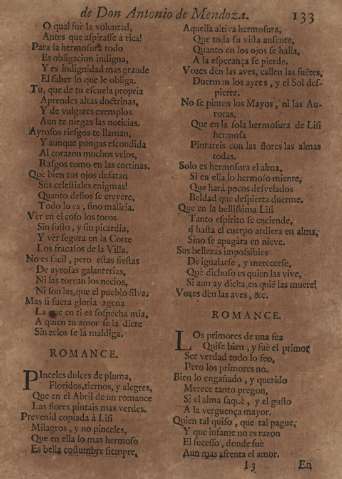 de Don Antonio de Mendoza. 133
O qual fue la voluntad,
Antes que aspirasse à tica!
Para la hermosura todo
Es obligacion indigna,
Y es indignidad mas grande
El saber lo que le obliga.
Tu, que de tu escuela propria
Aprendes altas doctrinas,
Y de vulgares exemplos
Aun te niegas las noticias.
Ayrosos riesgos te llaman,
Y aunque pongas escondida
Al corazon muchos velos,
Rasgos tomo en las cortinas.
Que bien tus ojos desatan
Sus celestiales enigmas!
Quanto desseos se ervere,
Todo lo es, sino malicia.
Ver en el coso los toros
Sin susto, y sin picardia,
Y ver segura en la Corte
Los fracasos de la Villa.
No es facil, pero estas fiestas
De ayrosas galanterias,
Ni las toréan los necios,
Ni son las que el pueblo silva.
Mas si fuera gloria agena
La que en ti es sospecha mia,
A quien tu amor se la diere
Sin zelos se la maldiga.
ROMANCE.
PInceles dulces de pluma,
Floridos, tiernos, y alegres,
Que en el Abril de un romance
Las flores pintais mas verdes.
Prevenid copiada à Lisi
Milagros, y no pinceles,
Que en ella lo mas hermoso
Es bella costumbre siempre,
Aquella altiva hermosura,
Que toda su vida ausente,
Quanto en los ojos se halla,
A la esperança se pierde.
Vozes den las aves, callen las fuentes,
Duerman los ayres, y el Sol despierte.
No se pinten los Mayos, ni las Auroras,
Que en la sola hermosura de Lisi hermosa
Pintareis con las flores las almas todas.
Solo es hermosura el alma,
Si en ella lo hermoso miente,
Que hará pocos desvelados
Beldad que despierta duerme.
Que en la bellissima Lisi
Tanto espiritu se enciende,
q̃ hasta el cuerpo ardiera en alma,
Sino se apagara en nieve.
Sus bellezas impossibles
De igualarse, y merecerse,
Què dichoso es quien las vive,
Si aun ay dicha en què las muere!
Vozes den las aves, &c.
ROMANCE.
LOs primores de una fea
Quise bien, y fuè el primor
Ser verdad todo lo feo,
Pero los primores no.
Bien lo engañado, y querido
Merece tanto pregon,
Si el alma saquè, y el gusto
A la verguença mayor.
Quien tal quiso, que tal pague,
Y que infame no es razon
El sucesso, donde fuè
Aun mas afrenta el amor.
I3 En